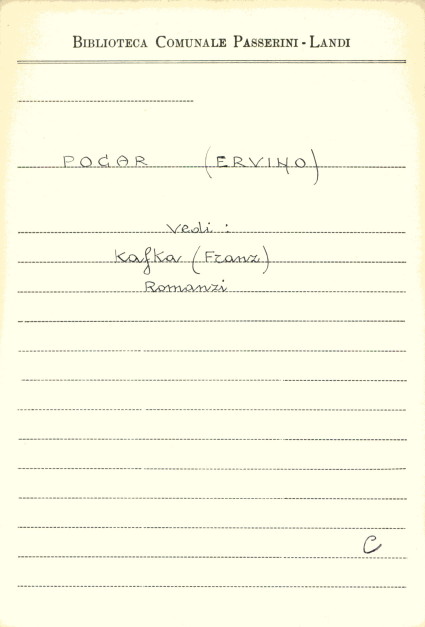 BIBLIOTECA COMUNALE PASSERINI - LANDI
POCAR (ERVINO)
Vedi :
Kafka (Franz)
Romanzi
C